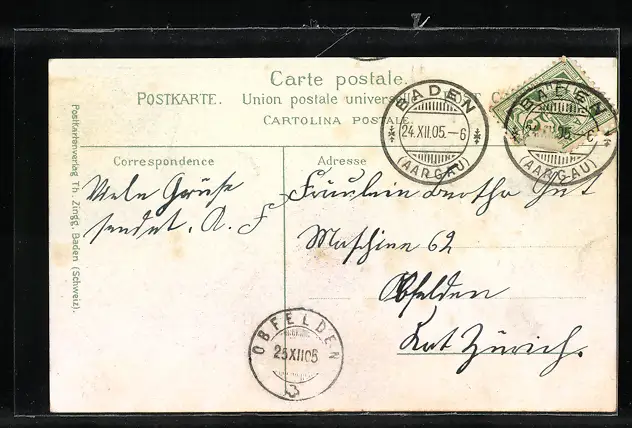 Carte postale.
POSTKARTE. Union postale universelle. POST
CARTOLINA POSTALE.
BADEN
24.XII.05.–6
(AARGAU)
BADEN
24.XII.05.–6
(AARGAU)
Correspondence
Adresse
Viele Grüße
sendet. A. F
Fräulein Bertha Gut
Maschine 62
Obfelden
Kat Zürich.
OBFELDEN
25XII05
Postkartenverlag Th. Zingg. Baden (Schweiz).